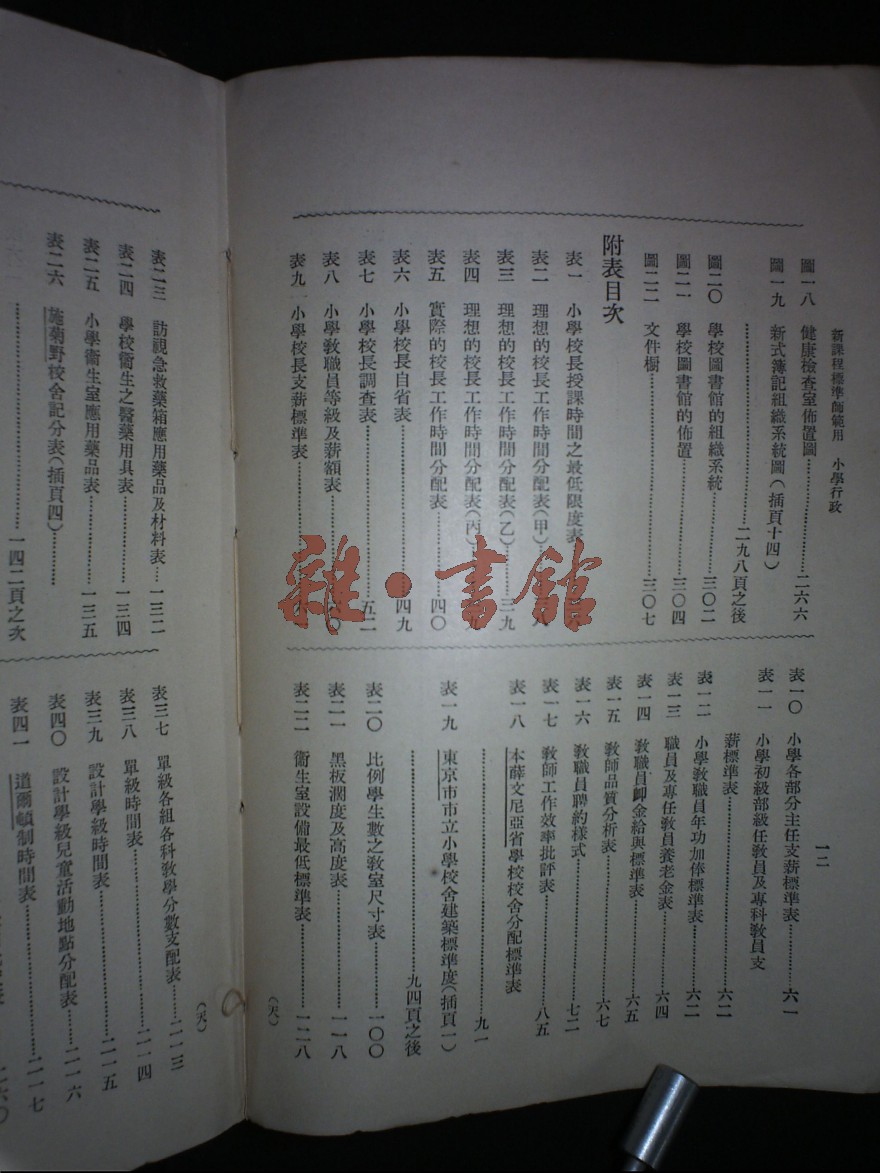 新課程標準師範用　小學行政
一二
圖一八　健康檢查室佈置圖…………二六六
圖一九　新式簿記組織系統圖（插頁十四）
…………二九八頁之後
圖二〇　學校圖書館的組織系統…………三〇二
圖二一　學校圖書館的佈置…………三〇四
圖二二　文件櫥…………三〇七
附表目次
表一　小學校長授課時間之最低限度表
表二　理想的校長工作時間分配表（甲）
表三　理想的校長工作時間分配表（乙）…三九
表四　理想的校長工作時間分配表（丙）
表五　實際的校長工作時間分配表…………四〇
表六　小學校長自省表…………四九
表七　小學校長調查表…………五二
表八　小學教職員等級及薪額表…………
表九　小學校長支薪標準表…………
表一〇　小學各部分主任支薪標準表…………六一
表一一　小學初級部級任教員及專科教員支
薪標準表…………六二
表一二　小學教職員年功加俸標準表…………六二
表一三　職員及專任教員養老金表…………六四
表一四　教職員卹金給與標準表…………六五
表一五　教師品質分析表…………六七
表一六　教職員聘約樣式…………七二
表一七　教師工作效率批評表…………八五
表一八　本薛文尼亞省學校校舍分配標準表
…………九一
表一九　東京市市立小學校舍建築標準度（插頁一）
…………九四頁之後
表二〇　比例學生數之教室尺寸表…………一〇〇
表二一　黑板濶度及高度表…………一一八
表二二　衞生室設備最低標準表…………一二八
（天）
表二三　訪視急救藥箱應用藥品及材料表…一三二
表二四　學校衞生之醫藥用具表…………一三四
表二五　小學衞生室應用藥品表…………一三五
表二六　施菊野校舍記分表（插頁四）…………
…………一四二頁之次
表三七　單級各組各科教學分數支配表…………二一三
表三八　單級時間表…………二一四
表三九　設計學級時間表…………二一五
表四〇　設計學級兒童活動地點分配表…………二一六
表四一　道爾頓制時間表…………二一七
（天）
雜·書館